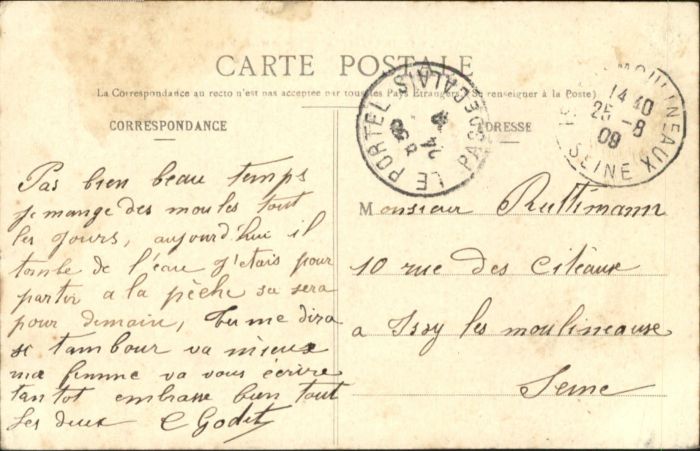 CARTE POSTALE
La Correspondance au recto n'est pas acceptée par tous les Pays Étrangers (Se renseigner à la Poste)
CORRESPONDANCE
ADRESSE
LE PORTEL PAS DE CALAIS
24 8
MOULINEAUX
14 40
25 - 8
09
SEINE
Pas bien beau temps
je mange des moules tout
les jours, aujourd'hui il
tombe de l'eau j'etais pour
partir a la pèche sa sera
pour demain, tu me dira
si tambour va mieux
ma femme va vous écrire
tantot embrasse bien tout
les deux E Godet
Monsieur Ruttimann
10 rue des Citeaux
a Issy les moulineause
Seine